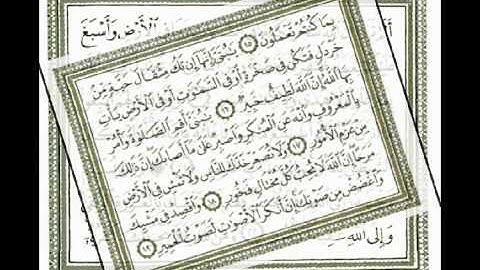 الْأَرْضِ وَأَسْبَغَ
بِمَا كُنتُمْ تَعْمَلُونَ ١٥ يَٰبُنَىَّ إِنَّهَآ إِن تَكُ مِثْقَالَ حَبَّةٍ مِّنْ
خَرْدَلٍ فَتَكُن فِى صَخْرَةٍ أَوْ فِى السَّمَٰوَٰتِ أَوْ فِى الْأَرْضِ يَأْتِ
بِهَا اللَّهُ إِنَّ اللَّهَ لَطِيفٌ خَبِيرٌ ١٦ يَٰبُنَىَّ أَقِمِ الصَّلَوٰةَ وَأْمُرْ
بِالْمَعْرُوفِ وَانْهَ عَنِ الْمُنكَرِ وَاصْبِرْ عَلَىٰ مَآ أَصَابَكَ إِنَّ ذَٰلِكَ
مِنْ عَزْمِ الْأُمُورِ ١٧ وَلَا تُصَعِّرْ خَدَّكَ لِلنَّاسِ وَلَا تَمْشِ فِى الْأَرْضِ
مَرَحًا إِنَّ اللَّهَ لَا يُحِبُّ كُلَّ مُخْتَالٍ فَخُورٍ ١٨ وَاقْصِدْ فِى مَشْيِكَ
وَاغْضُضْ مِن صَوْتِكَ إِنَّ أَنكَرَ الْأَصْوَٰتِ لَصَوْتُ الْحَمِيرِ ١٩
وَإِلَى اللَّهِ